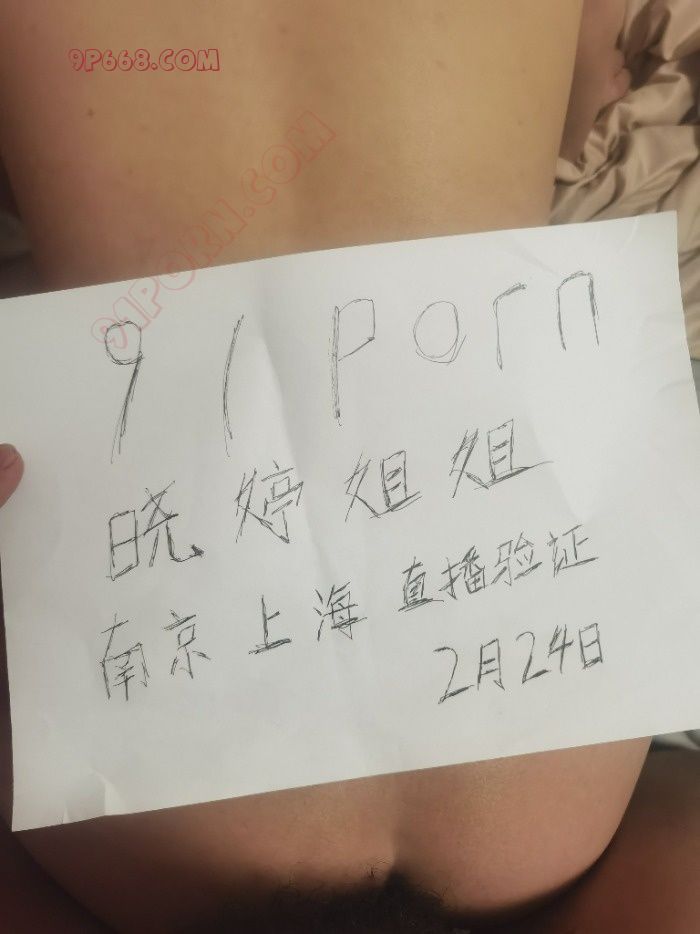 9P668.COM
91PORN.COM
91porn
晓婷姐姐
南京上海直播验证
2月24日